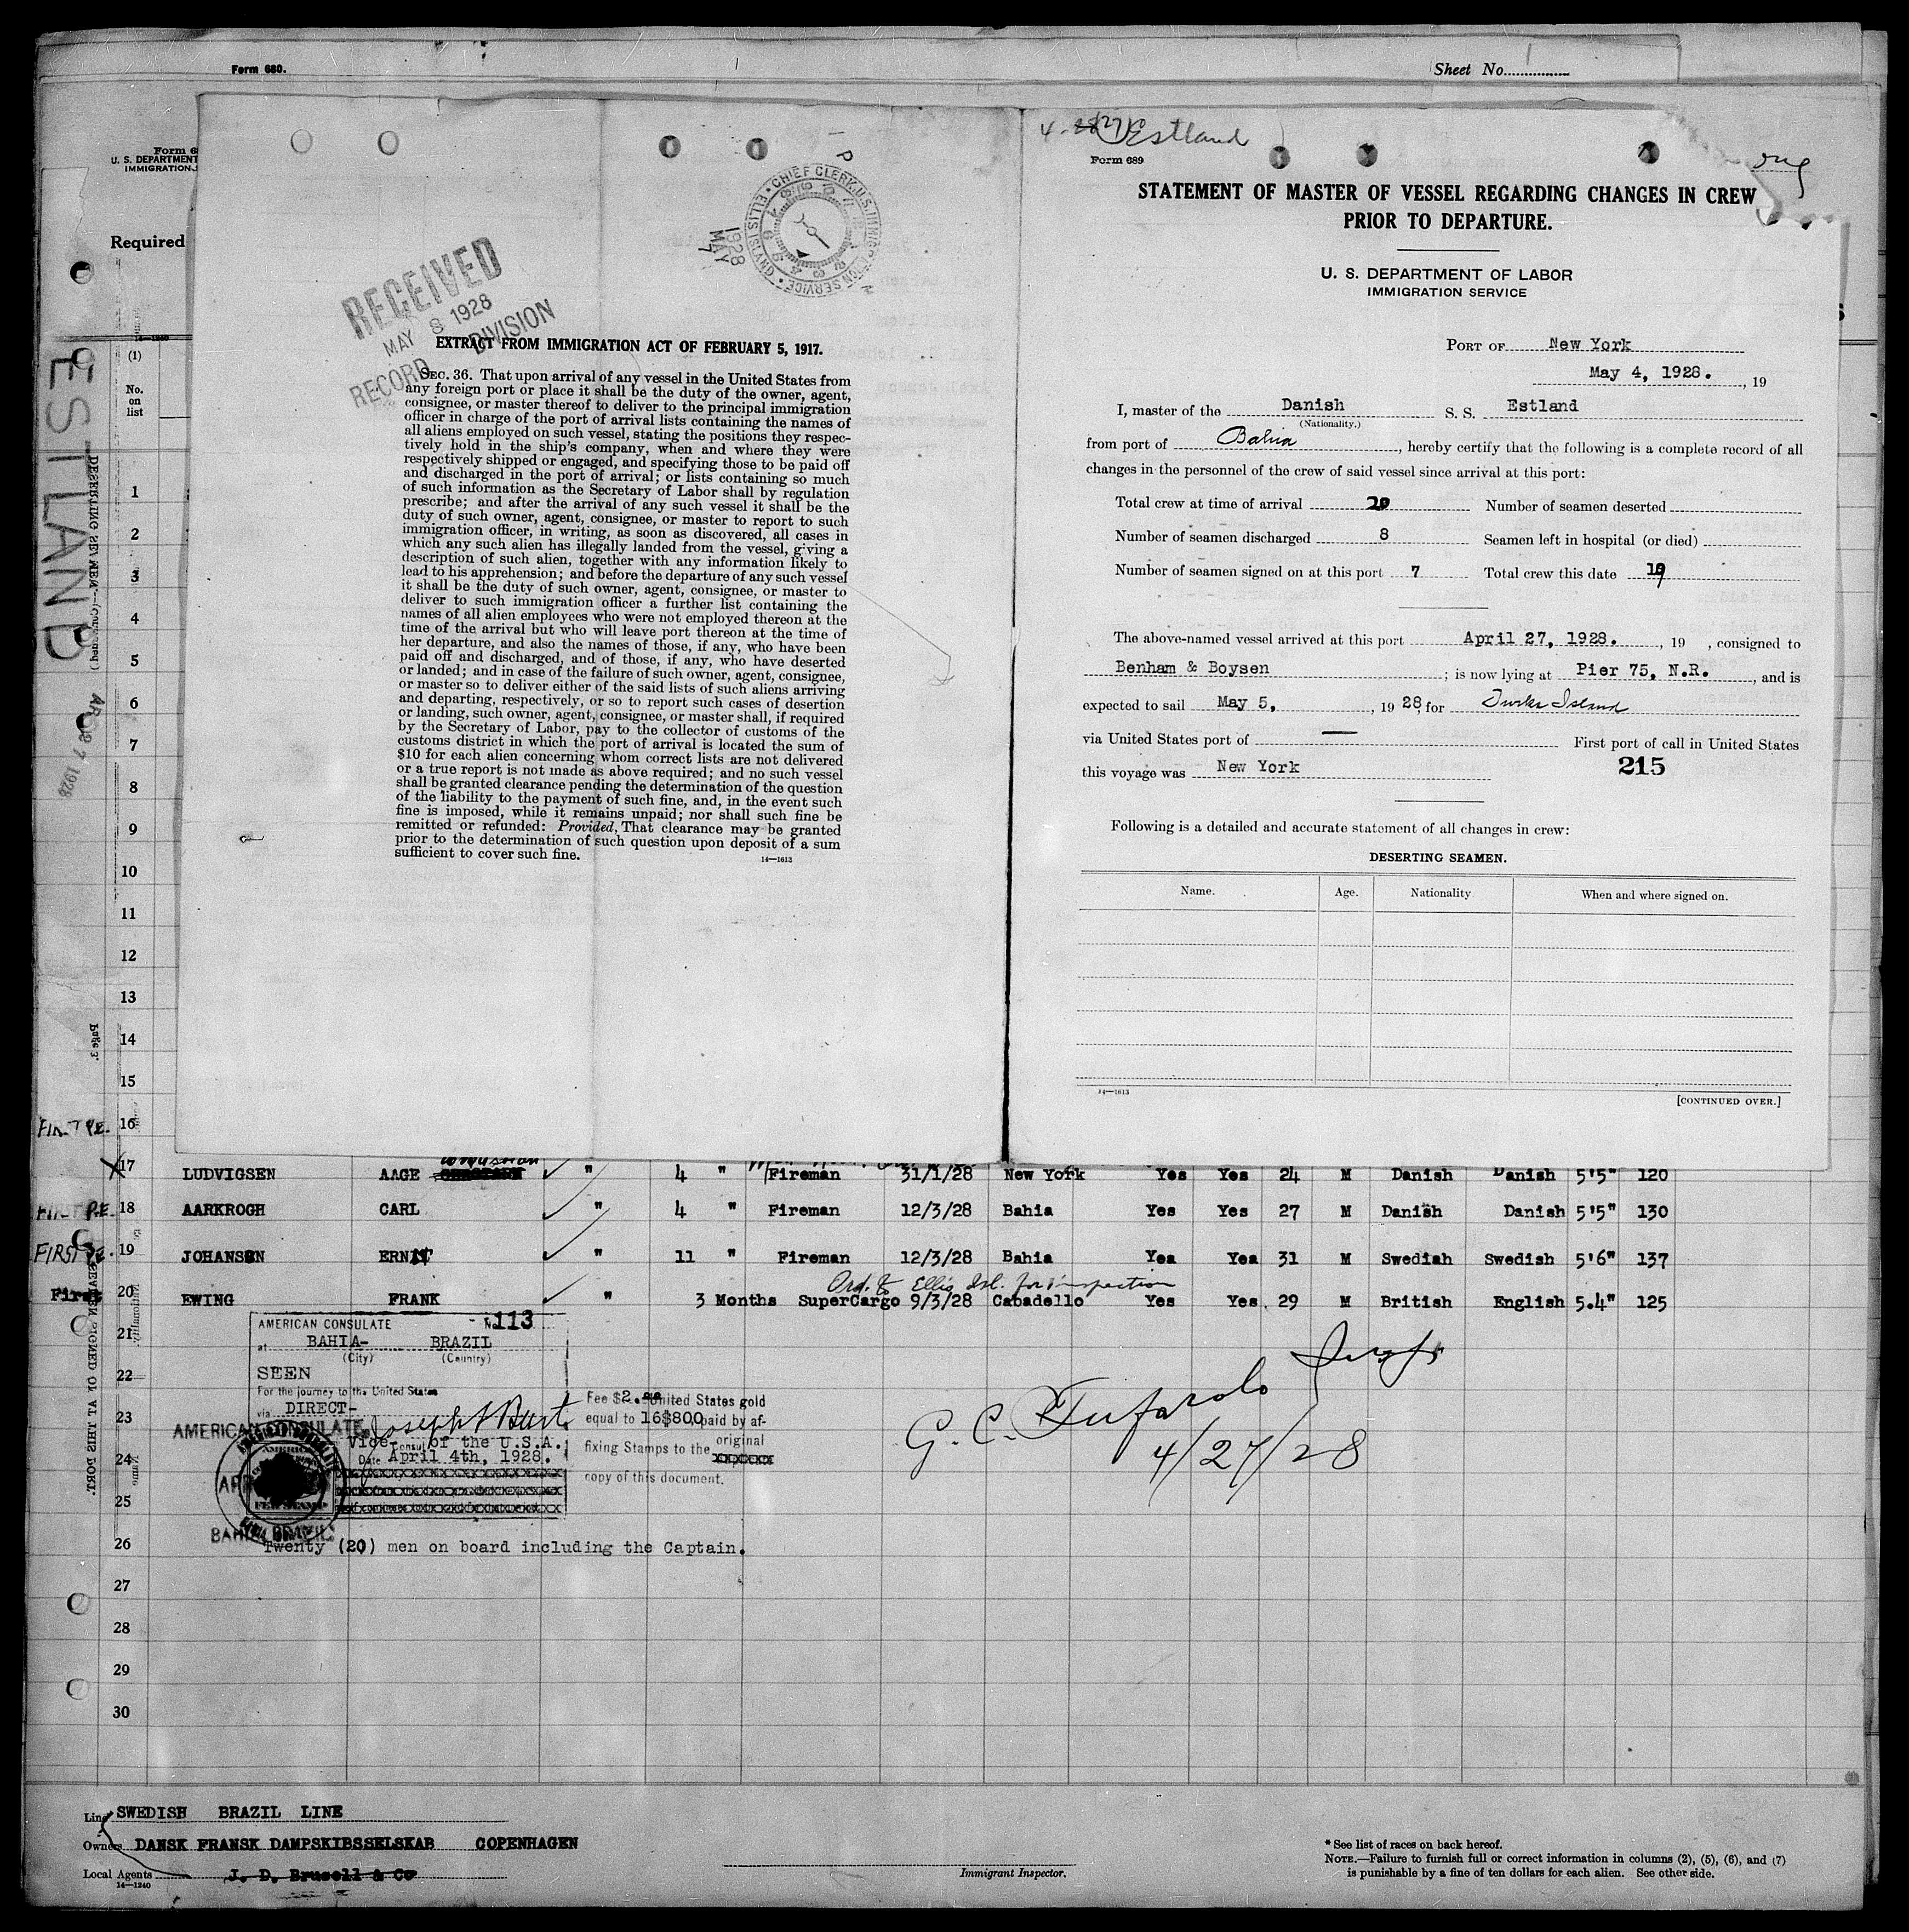 Form 680.
Sheet No. 1
U. S. DEPARTMENT
IMMIGRATION
Required
(1)
No.
on
list
ESTLAND
DESERTING SEAMEN—(Continued)
APR 27 1928
Page 3.
SEAMEN SIGNED ON AT THIS PORT.
Nationality.
Name.
RECEIVED
MAY 8 1928
RECORD DIVISION
CHIEF CLERK, U.S. IMMIGRATION SERVICE • ELLIS ISLAND •
1928
MAY
7
P
EXTRACT FROM IMMIGRATION ACT OF FEBRUARY 5, 1917.
SEC. 36. That upon arrival of any vessel in the United States from
any foreign port or place it shall be the duty of the owner, agent,
consignee, or master thereof to deliver to the principal immigration
officer in charge of the port of arrival lists containing the names of
all aliens employed on such vessel, stating the positions they respec-
tively hold in the ship's company, when and where they were
respectively shipped or engaged, and specifying those to be paid off
and discharged in the port of arrival; or lists containing so much
of such information as the Secretary of Labor shall by regulation
prescribe; and after the arrival of any such vessel it shall be the
duty of such owner, agent, consignee, or master to report to such
immigration officer, in writing, as soon as discovered, all cases in
which any such alien has illegally landed from the vessel, giving a
description of such alien, together with any information likely to
lead to his apprehension; and before the departure of any such vessel
it shall be the duty of such owner, agent, consignee, or master to
deliver to such immigration officer a further list containing the
names of all alien employees who were not employed thereon at the
time of the arrival but who will leave port thereon at the time of
her departure, and also the names of those, if any, who have been
paid off and discharged, and of those, if any, who have deserted
or landed; and in case of the failure of such owner, agent, consignee,
or master so to deliver either of the said lists of such aliens arriving
and departing, respectively, or so to report such cases of desertion
or landing, such owner, agent, consignee, or master shall, if required
by the Secretary of Labor, pay to the collector of customs of the
customs district in which the port of arrival is located the sum of
$10 for each alien concerning whom correct lists are not delivered
or a true report is not made as above required; and no such vessel
shall be granted clearance pending the determination of the question
of the liability to the payment of such fine, and, in the event such
fine is imposed, while it remains unpaid; nor shall such fine be
remitted or refunded: Provided, That clearance may be granted
prior to the determination of such question upon deposit of a sum
sufficient to cover such fine.
14—1613
Estland
Form 689
STATEMENT OF MASTER OF VESSEL REGARDING CHANGES IN CREW
PRIOR TO DEPARTURE.
U. S. DEPARTMENT OF LABOR
IMMIGRATION SERVICE
PORT OF New York
May 4, 1928. , 19
I, master of the Danish S. S. Estland
(Nationality.)
from port of Bahia, hereby certify that the following is a complete record of all
changes in the personnel of the crew of said vessel since arrival at this port:
Total crew at time of arrival 20 Number of seamen deserted
Number of seamen discharged 8 Seamen left in hospital (or died)
Number of seamen signed on at this port 7 Total crew this date 19
The above-named vessel arrived at this port April 27, 1928. , 19 , consigned to
Benham & Boysen ; is now lying at Pier 75, N.R. , and is
expected to sail May 5, , 1928, for Turks Island
via United States port of — First port of call in United States
this voyage was New York 215
Following is a detailed and accurate statement of all changes in crew:
DESERTING SEAMEN.
Name. Age. Nationality When and where signed on.
14—1613
[CONTINUED OVER.]
1
2
3
4
5
6
7
8
9
10
11
12
13
14
15
FIRST P.E. 16
17 LUDVIGSEN AAGE " 4 " Fireman 31/1/28 New York Yes Yes 24 M Danish Danish 5'5" 120
FIRST P.E. 18 AARKROGH CARL " 4 " Fireman 12/3/28 Bahia Yes Yes 27 M Danish Danish 5'5" 130
FIRST P.E. 19 JOHANSON ERNST " 11 " Fireman 12/3/28 Bahia Yes Yes 31 M Swedish Swedish 5'6" 137
Ord. to Ellis Isl. for inspection
First 20 EWING FRANK " 3 Months SuperCargo 9/3/28 Cabadello Yes Yes. 29 M British English 5.4" 125
21
22
23
24
25
26
27
28
29
30
AMERICAN CONSULATE No 113
at BAHIA- BRAZIL
(City) (Country)
SEEN
For the journey to the United States
via DIRECT-
Joseph Burt
Vice Consul of the U.S.A.
Date April 4th, 1928.
AMERICAN CONSULATE
FEE STAMP
BAHIA, BRAZIL
Fee $2. United States gold
equal to 16$800, paid by af-
fixing Stamps to the original
copy of this document.
Twenty (20) men on board including the Captain.
4/27/28
Line SWEDISH BRAZIL LINE
Owners DANSK FRANSK DAMPSKIBSSELSKAB COPENHAGEN
Local Agents J. D. Brusell & Co
14—1240
Immigrant Inspector.
* See list of races on back hereof.
NOTE.—Failure to furnish full or correct information in columns (2), (5), (6), and (7)
is punishable by a fine of ten dollars for each alien. See other side.